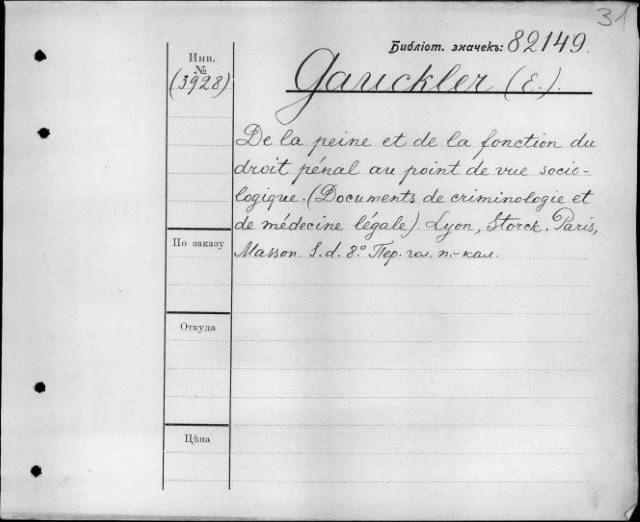 31
Библіот. значекъ: 82149.
Инв.
№
(3928)
Gauckler (E.).
De la peine et de la fonction du
droit pénal au point de vue socio-
logique. (Documents de criminologie et
de médecine légale). Lyon, Storck. Paris,
Masson. S. d. 8° Пер. гол. п.-кал.
По заказу
Откуда
Цѣна